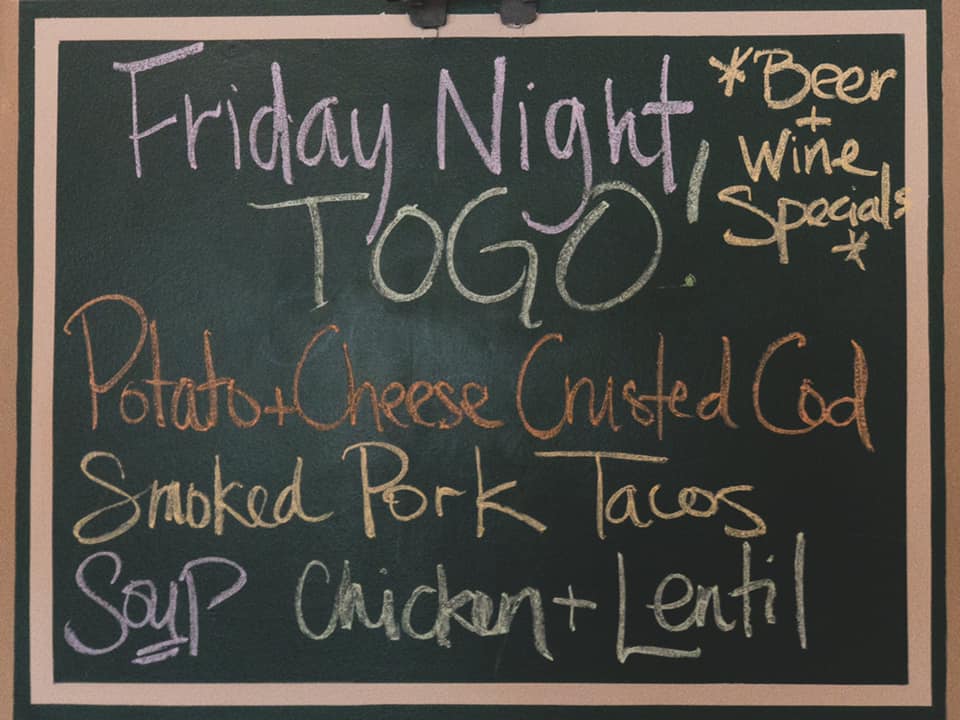 Friday Night
TOGO!
*Beer
+
Wine
Specials
*
Potato + Cheese Crusted Cod
Smoked Pork Tacos
Soup Chicken + Lentil